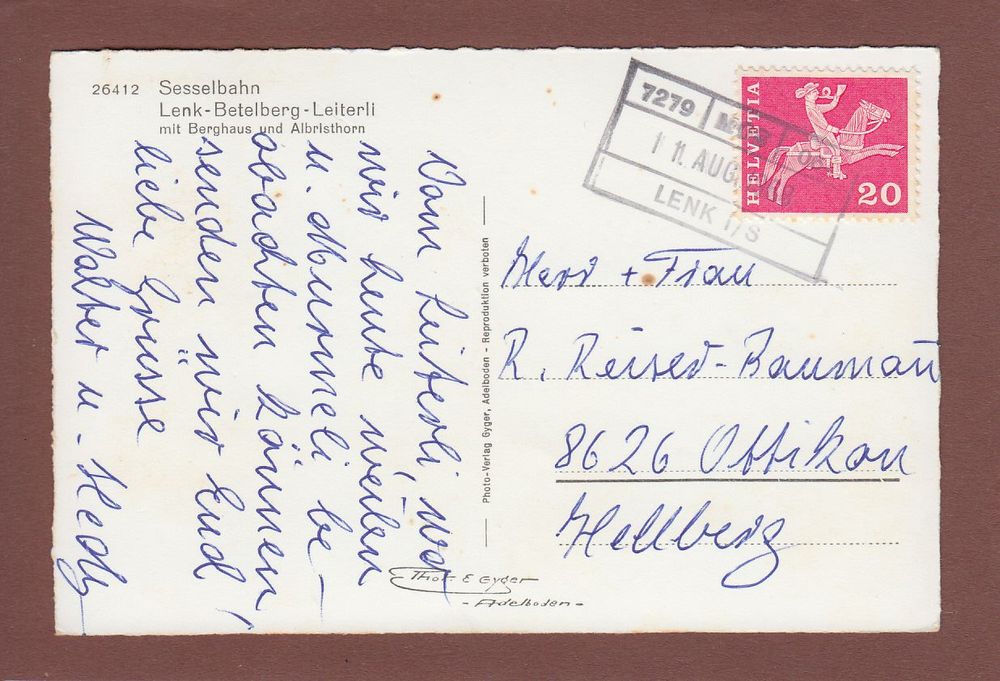 26412 Sesselbahn
Lenk-Betelberg-Leiterli
mit Berghaus und Albristhorn
Vom Leiterli, wo
wir heute weilen
u. Murmeli be-
obachten können,
senden wir Euch
liebe Grüsse
Walter u. Hedy
Photo-Verlag Gyger, Adelboden - Reproduktion verboten
Phot. E Gyger
- Adelboden -
7279
11. AUG.
LENK I/S
HELVETIA
20
Herr + Frau
R. Reiser-Baumann
8626 Ottikon
Hellberg